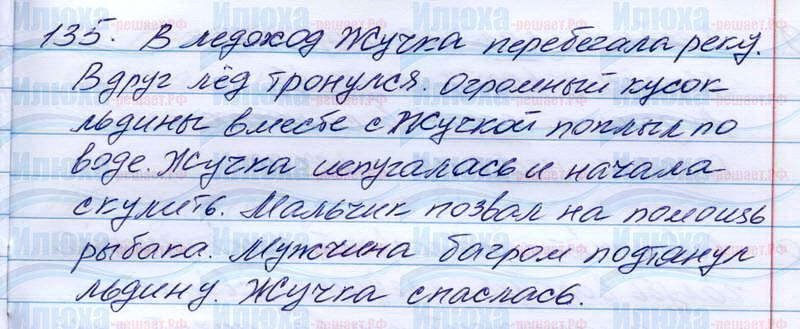 135. В ледоход Жучка перебегала реку.
Вдруг лёд тронулся. Огромный кусок
льдины вместе с Жучкой поплыл по
воде. Жучка испугалась и начала
скулить. Мальчик позвал на помощь
рыбака. Мужчина багром подтянул
льдину. Жучка спаслась.